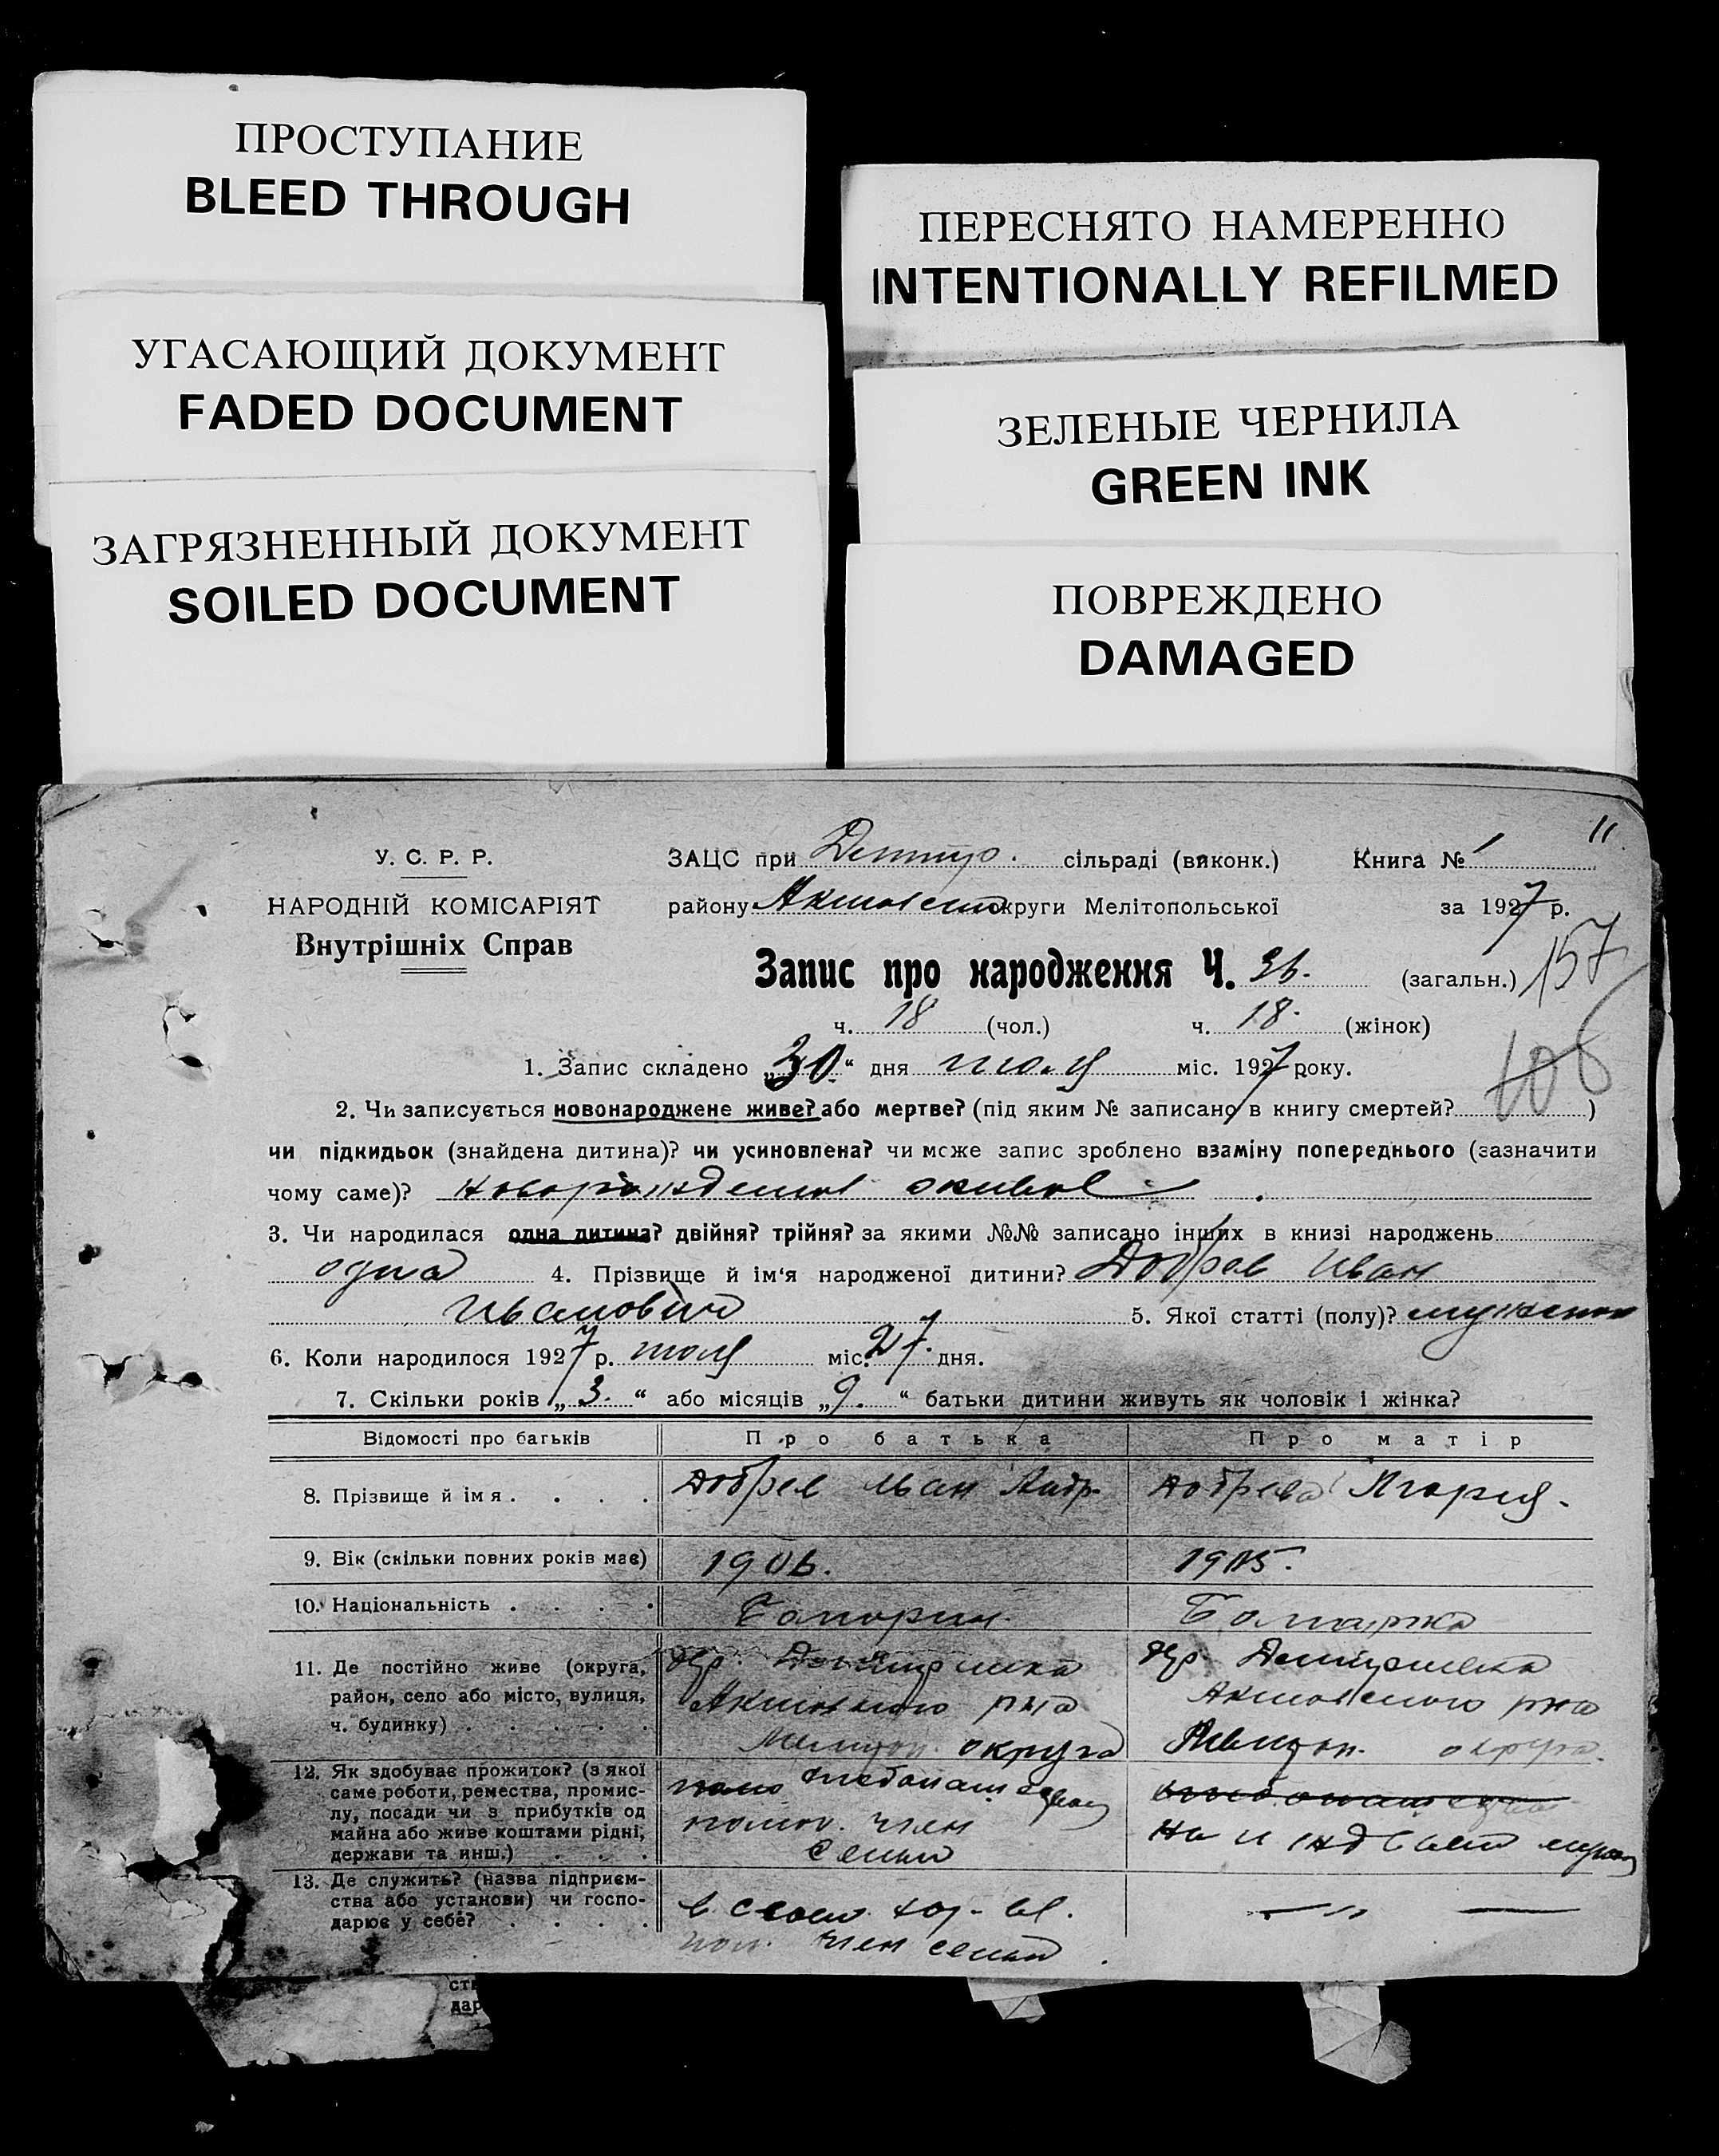 ПРОСТУПАНИЕ
BLEED THROUGH
УГАСАЮЩИЙ ДОКУМЕНТ
FADED DOCUMENT
ЗАГРЯЗНЕННЫЙ ДОКУМЕНТ
SOILED DOCUMENT
ПЕРЕСНЯТО НАМЕРЕННО
INTENTIONALLY REFILMED
ЗЕЛЕНЫЕ ЧЕРНИЛА
GREEN INK
ПОВРЕЖДЕНО
DAMAGED
11
У. С. Р. Р.
НАРОДНІЙ КОМІСАРІЯТ
Внутрішніх Справ
ЗАЦС при сільраді (виконк.) Книга № 1
району округи Мелітопольської за 1927 р.
Запис про народження Ч. 36. (загальн.) 157
ч. 18 (чол.) ч. 18. (жінок)
1. Запис складено „30“ дня июля міс. 1927 року.
106
2. Чи записується новонароджене живе? або мертве? (під яким № записано в книгу смертей? )
чи підкидьок (знайдена дитина)? чи усиновлена? чи може запис зроблено взаміну попереднього (зазначити
чому саме)?
3. Чи народилася одна дитина? двійня? трійня? за якими №№ записано інших в книзі народжень
одна 4. Прізвище й ім‘я народженої дитини? Добрев Иван
Иванович 5. Якої статті (полу)?
6. Коли народилося 1927 р. июля міс. 27. дня.
7. Скільки років „3.“ або місяців „9.“ батьки дитини живуть як чоловік і жінка?
Відомості про батьків Про батька Про матір
8. Прізвище й імя Добрев Иван Андр. Добрева Мария.
9. Вік (скільки повних років має) 1906. 1905.
10. Національність Болгарин. Болгарка
11. Де постійно живе (округа,
район, село або місто, вулиця,
ч. будинку)
дер. Дмитровка
р-на
округа
дер. Дмитровка
Акимовского р-на
Мелитоп. округа.
12. Як здобуває прожиток? (з якої
саме роботи, ремества, промис-
лу, посади чи з прибутків од
майна або живе коштами рідні,
держави та инш.)
хлебопашество
член
семьи
на иждивении мужа
13. Де служить? (назва підприєм-
ства або установи) чи госпо-
дарює у себе?
в своем хоз-ве.
член семьи.
— „ —
ств
дар